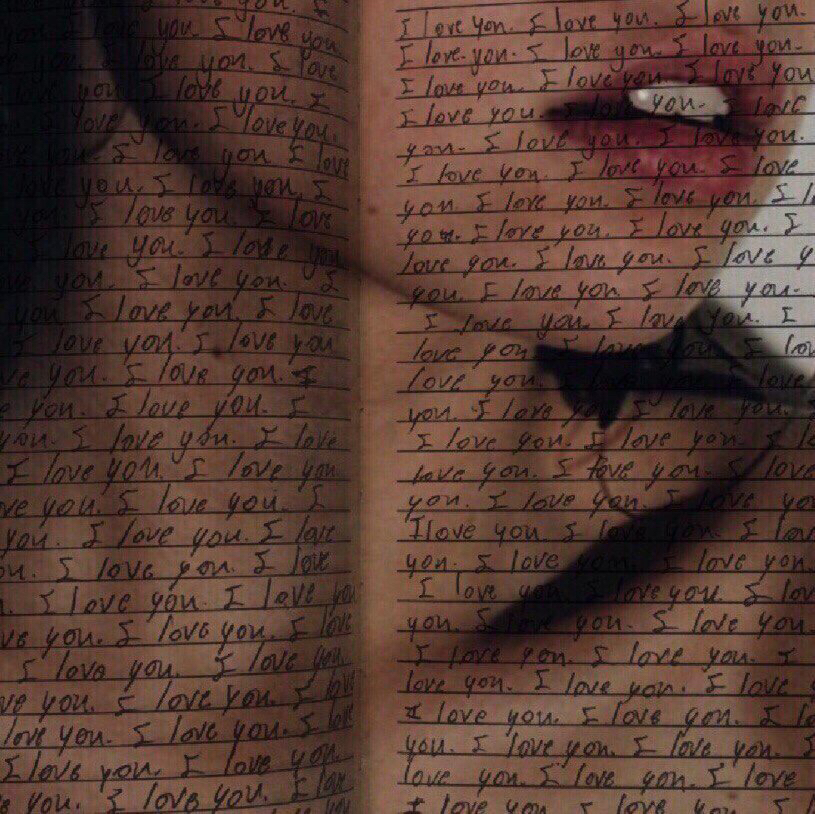 you I love you. I love you
you. I love you. I love
you. I love you. I
I love you. I love you.
I love you. I love
love you. I love you. I
you. I love you. I love
I love you. I love you
you. I love you. I
you I love you. I love
I love you. I love you
ve you. I love you. I
e you. I love you. I
you. I love you. I love
I love you. I love you
ve you. I love you. I
you. I love you. I love
ou. I love you. I love
I love you. I love you
ve you. I love you. I love
I love you. I love you
ve you. I love you. I love
love you. I love you. I love
I love you. I love you.
e you. I love you. I lov
I love you. I love you. I love you.
I love you. I love you. I love you.
I love you. I love you I love you
I love you. I love you. I love
you. I love you. I love you.
I love you. I love you. I love
you I love you. I love you. I l
you. I love you. I love you. I
love you. I love you. I love y
you. I love you I love you.
I love you. I love you. I
love you. I love you. I lov
love you. I love you. I love
you. I love you. I love you. I
I love you. I love you. I lo
love you. I love you. I love
you. I love you. I love you
I love you I love you. I lov
you. I love you. I love you
I love you. I love you I lov
you. I love you. I love you.
I love you. I love you. I
love you. I love you. I love
I love you. I love you. I lo
you. I love you. I love you.
love you. I love you. I love
I love you I love you. I l